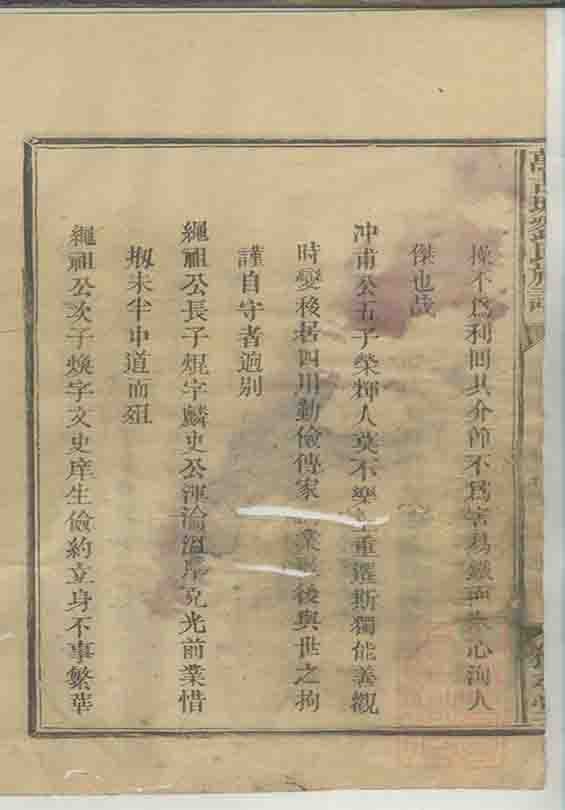 操不爲利回其介節不爲害易鐵面冰心洵人
傑也哉
冲甫公五子榮輝人莫不樂重遷斯獨能善觀
時變移居四川勤儉傳家業後與世之拘
謹自守者逈別
繩祖公長子焜字麟史公渾淪溫厚克光前業惜
掀未半中道而殂
繩祖公次子煥字文史庠生儉約立身不事繁華